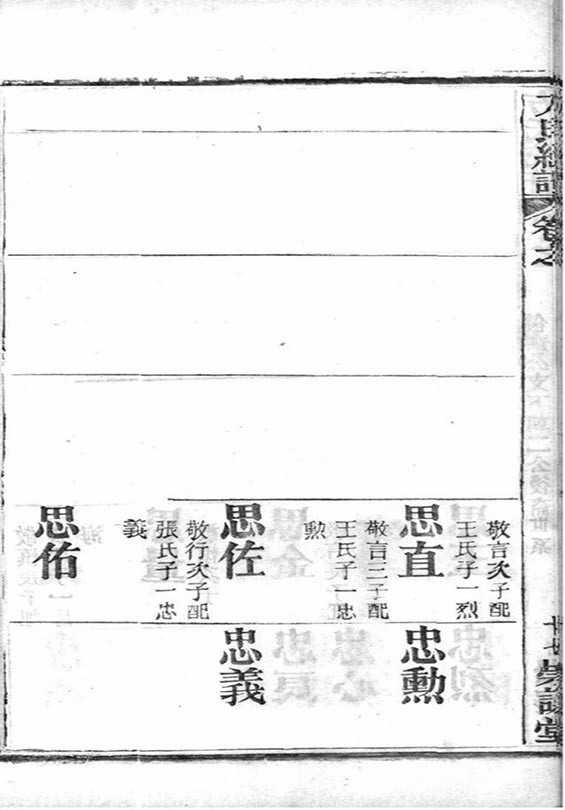 氏統譜
卷之
十七
堂
敬言次子配
王氏子一烈
思直
敬言三子配
王氏子一忠
勲
思佐
敬行次子配
張氏子一忠
義
思佑
忠勲
忠義